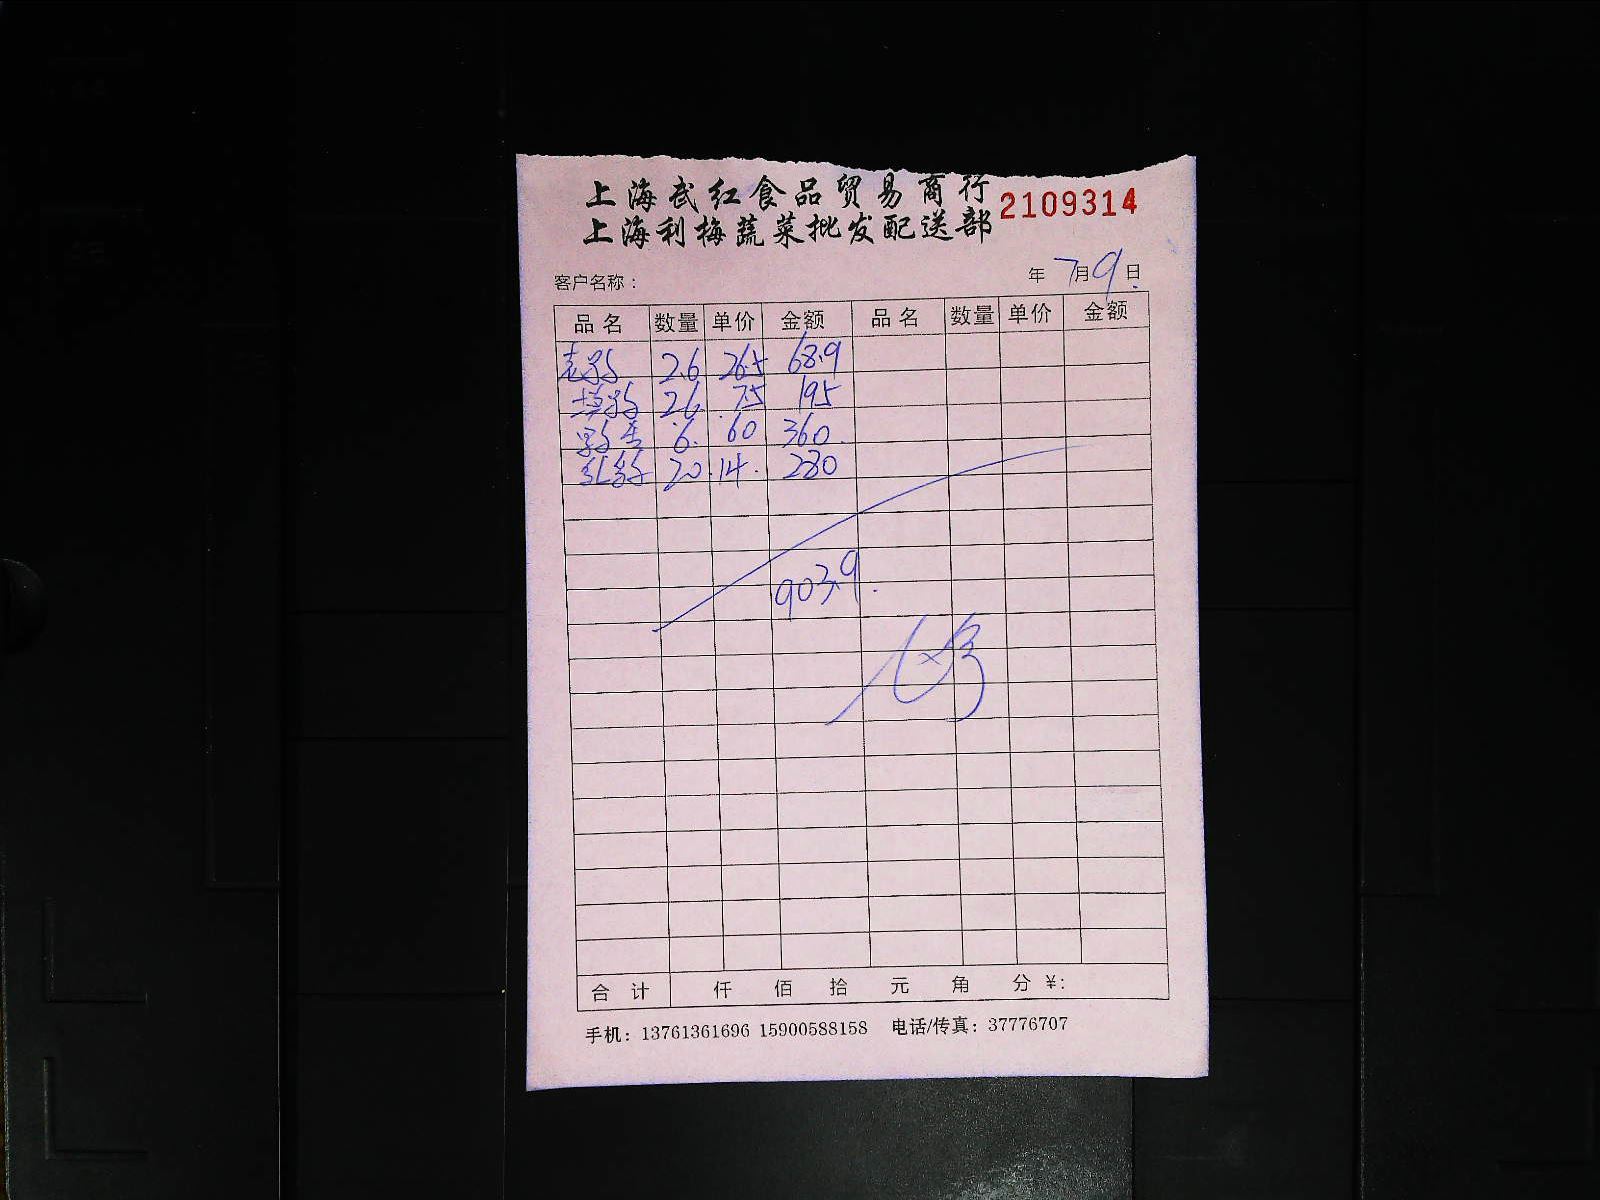 上海武红食品贸易商行
2109314
上海利梅蔬菜批发配送部
客户名称： 年 7月9日
品名 数量 单价 金额 品名 数量 单价 金额
2.6 26.5 68.9
草鸡 26 7.5 195
鸡蛋 6 60 360
20 14 280
903.9
合计 仟 佰 拾 元 角 分 ￥:
手机：13761361696 15900588158 电话/传真：37776707